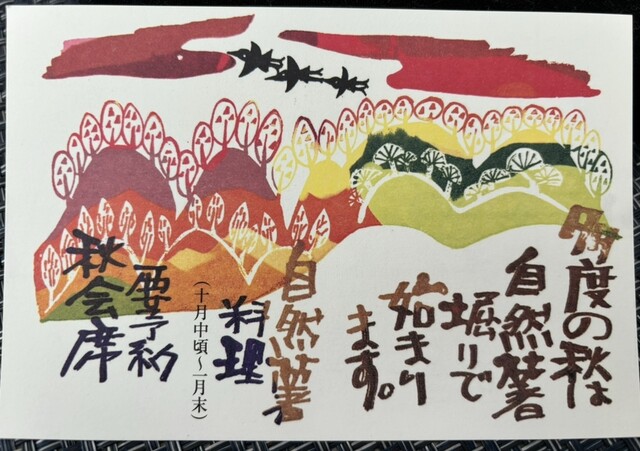 度の秋は
自然薯
堀りで
始まり
ます。
自然薯
料理
（十月中頃～一月末）
要予約
秋会席